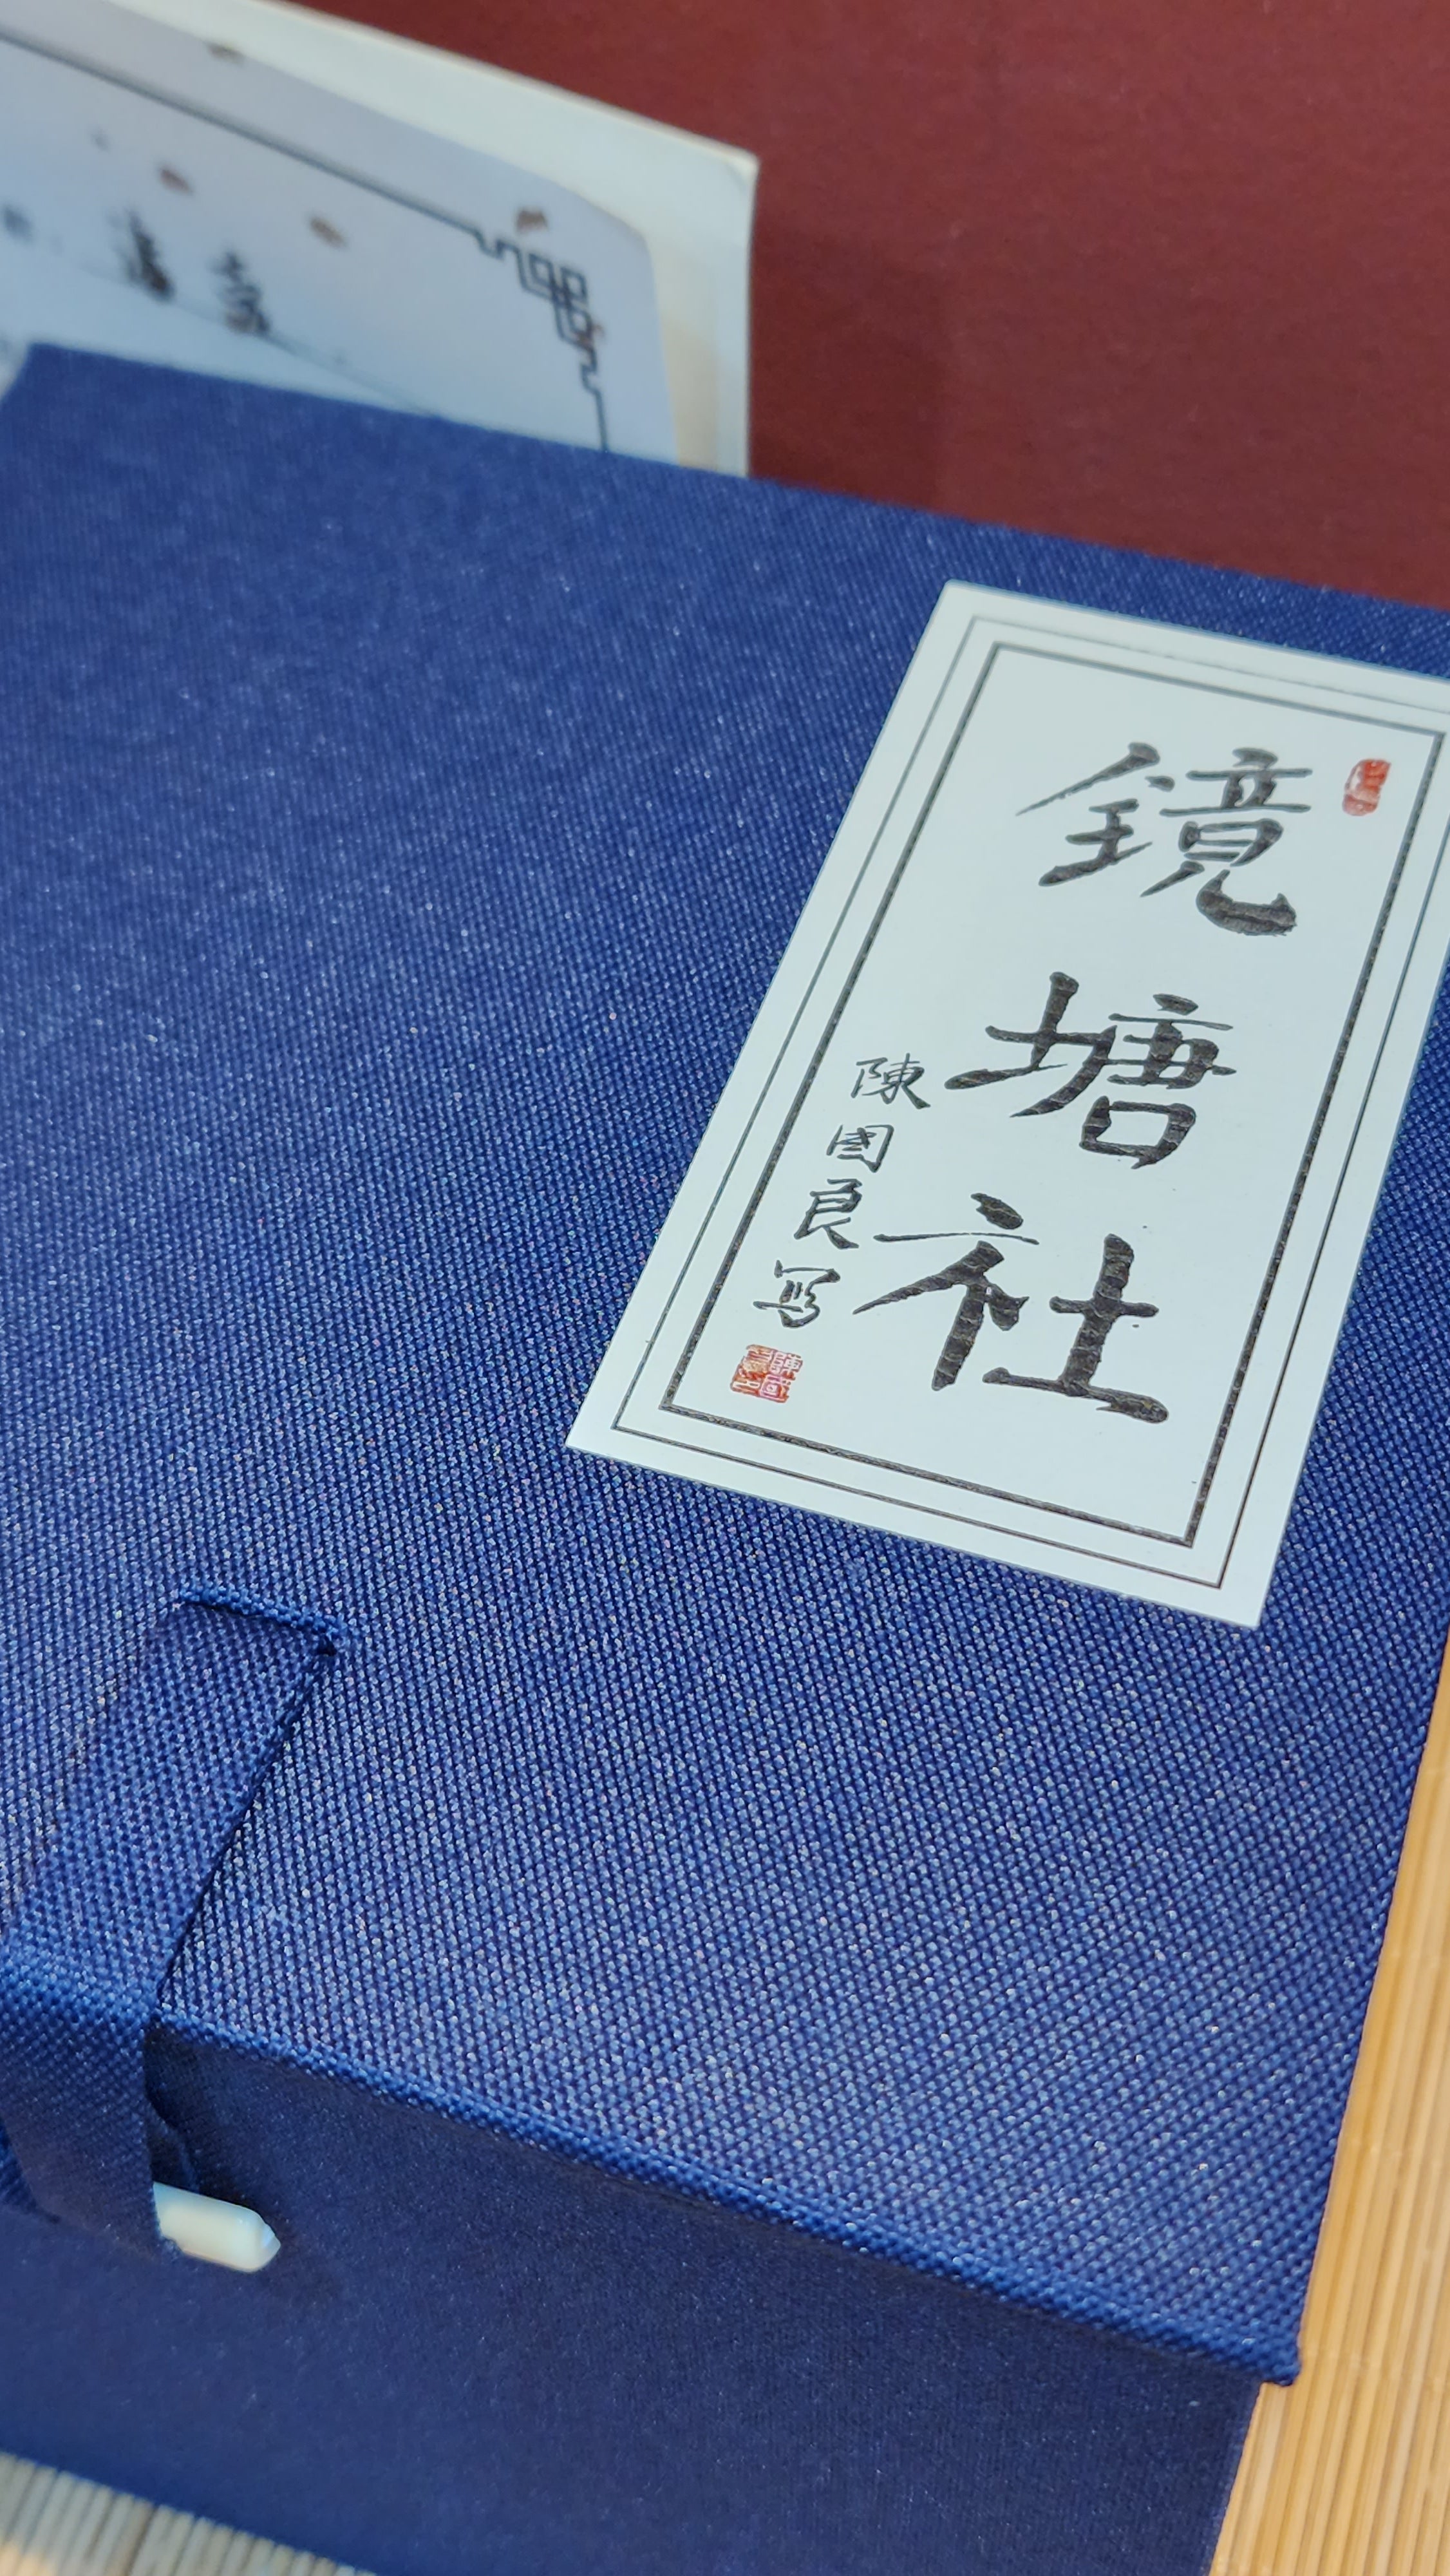 鏡塘社
陳國良寫